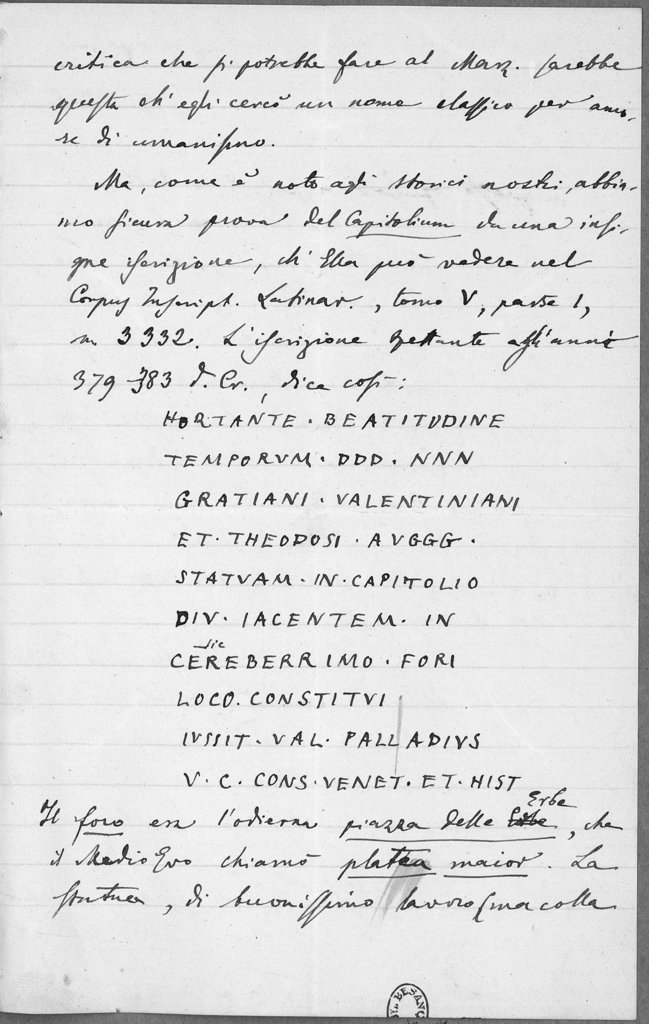 critica che si potrebbe fare al Marz. sarebbe
questa ch'egli cercò un nome classico per amo-
re di umanismo.
Ma, come è noto agli storici nostri, abbia-
mo sicura prova del Capitolium da una insi-
gne iscrizione, ch'Ella può vedere nel
Corpus Inscript. Latinar., tomo V, parte 1,
n. 3332. L'iscrizione spettante agli anni
379-383 d. Cr., dice così:
HORTANTE · BEATITUDINE
TEMPORVM · DDD · NNN
GRATIANI · VALENTINIANI
ET · THEODOSI · AVGGG ·
STATVAM · IN · CAPITOLIO
DIV · IACENTEM · IN
sic
CEREBERRIMO · FORI
LOCO · CONSTITVI
IVSSIT · VAL · PALLADIVS
V · C · CONS · VENET · ET · HIST
Il foro era l'odierna piazza delle Erbe, che
il Medio Evo chiamò platea maior. La
statua, di buonissimo lavoro (ma colla
BESANÇ